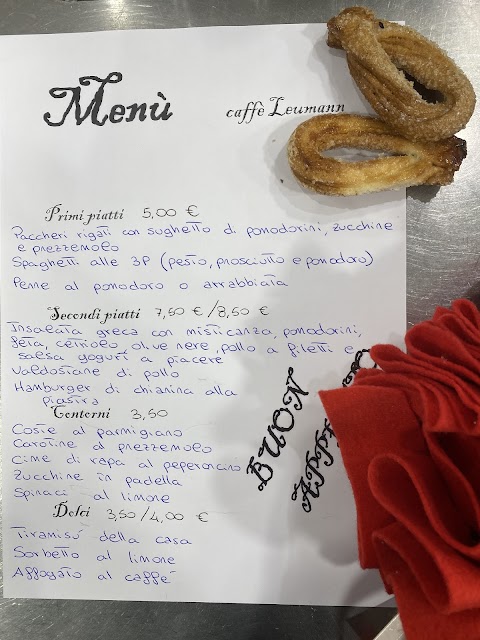 Menù
caffè Leumann
Primi piatti 5,00 €
Paccheri rigati con sughetto di pomodorini, zucchine
e prezzemolo
Spaghetti alle 3P (pesto, prosciutto e pomodoro)
Penne al pomodoro o arrabbiata
Secondi piatti 7,50 € / 8,50 €
Insalata greca con misticanza, pomodorini,
feta, cetriolo, olive nere, pollo a filetti e
salsa yogurt a piacere
Valdostane di pollo
Hamburger di chianina alla
piastra
Contorni 3,50
Coste al parmigiano
Carotine al prezzemolo
Cime di rapa al peperoncino
Zucchine in padella
Spinaci al limone
Dolci 3,50/4,00 €
Tiramisù della casa
Sorbetto al limone
Affogato al caffè
BUON